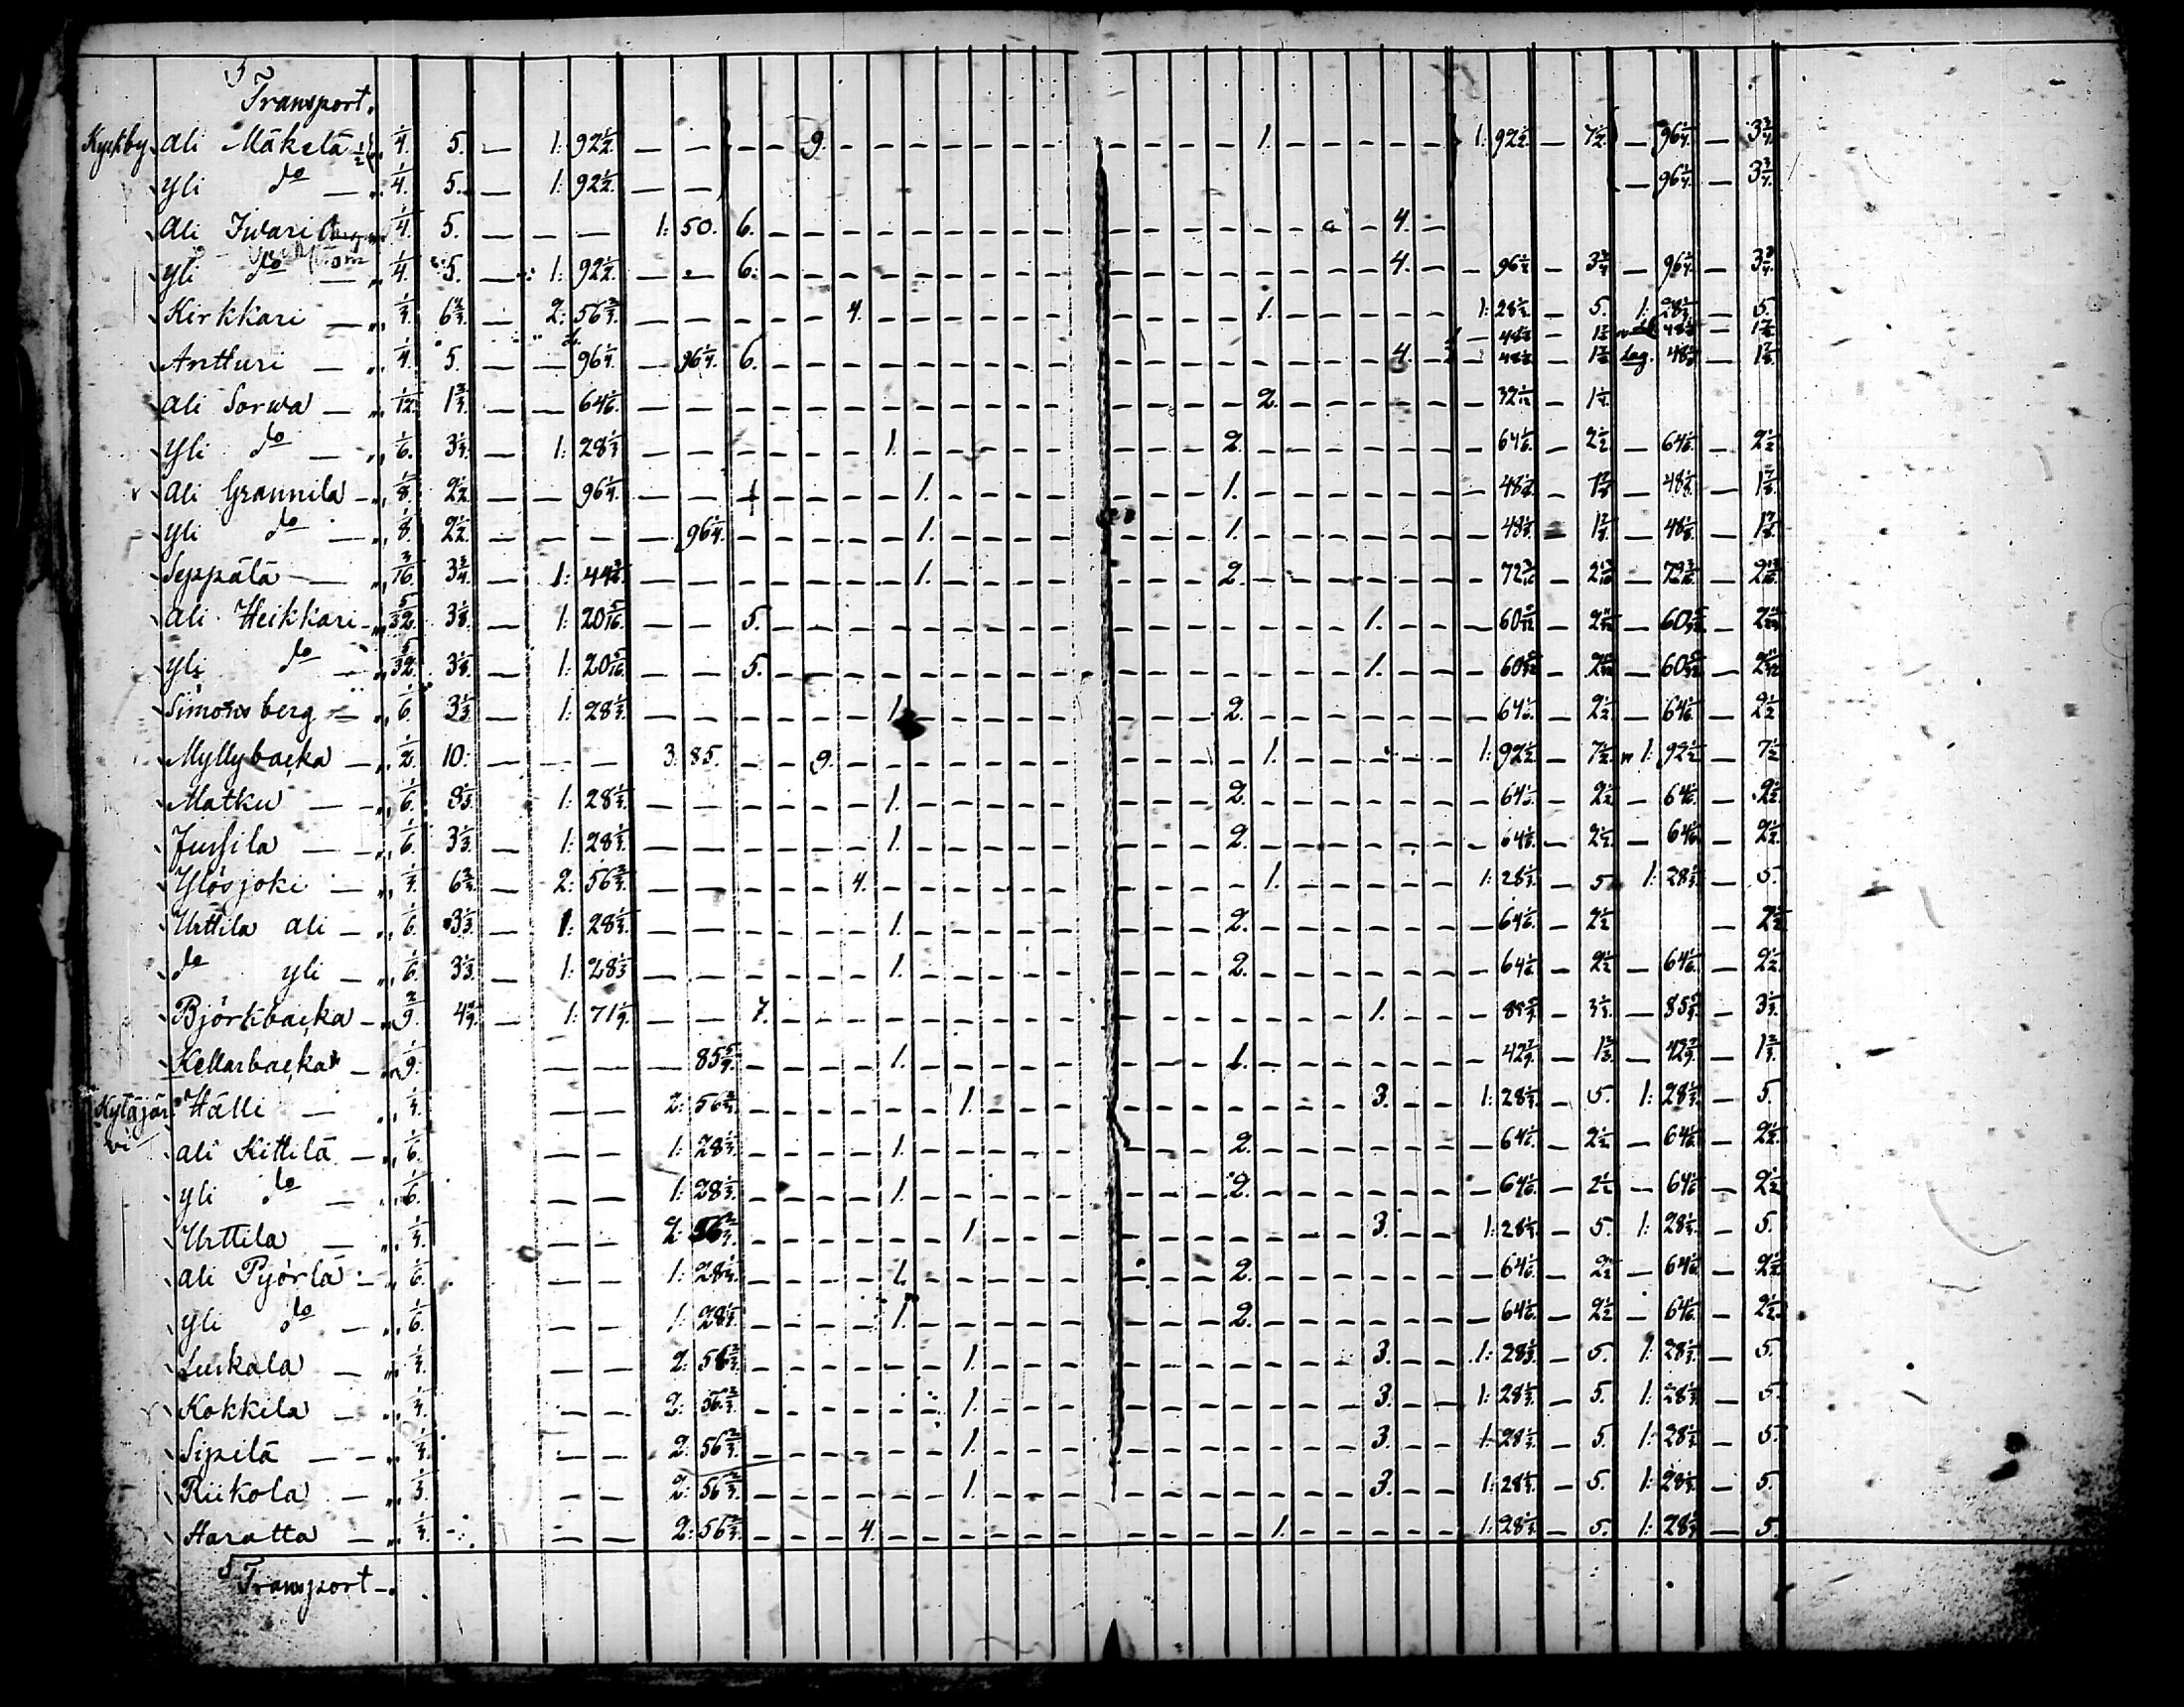 Transport.
Kyrkby Ali Mäkelä 1/2 1/4. 5. — 1: 92 1/2 — — — — 9. — — — — — — — — — — — 1. — — — — — 1: 92 1/2. — 7 1/2. — 96 1/4. — 3 3/4.
Yli do — „ 1/4. 5. — 1: 92 1/2 — — — 96 1/4. — 3 3/4.
Ali Iwari „ 1/4. 5. — — — 1: 50. 6. — — — — — — — — — 4. —
Yli do — „ 1/4. 5. — 1: 92 1/2 — — 6. — — — — — — — — — 4. — — 96 1/4 — 3 3/4 — 96 1/4. — 3 3/4.
Kirkkari — „ 1/3. 6 2/3. — 2: 56 2/3. — — — — — 4. — — — — — — 1. — — — — — 1: 28 1/3. — 5. 1: 28 1/3. — 5.
— 48 1/8 — 1 7/8 48 1/8 — 1 7/8
Antturi — „ 1/4. 5. — — 96 1/4. — 96 1/4. 6. — — — — — — — — — 4. — — 48 1/8. — 1 7/8 48 1/8 — 1 7/8.
Ali Sorwa — „ 1/12. 1 2/3. — — 64 1/6. — — — — — — — — — 2. — — — — — — 32 1/12 — 1 1/4.
Yli do — „ 1/6. 3 1/3. — 1: 28 1/3 — — — — — — 1. — — — — — 2. — — — — — — 64 1/6. — 2 1/2 — 64 1/6. — 2 1/2.
Ali Grannila — „ 1/8. 2 1/2 — — 96 1/4. — — — — — — — 1. — — — — 1. — — — — — — 48 1/8. — 1 7/8 — 48 1/8. — 1 7/8.
Yli do — „ 1/8. 2 1/2. — — — — 96 1/4. — — — — — 1. — — — — 1. — — — — — — 48 1/8 — 1 7/8 — 48 1/8. — 1 7/8.
Seppälä — „ 3/16. 3 3/4. — 1: 44 3/8. — — — — — — — 1. — — — — 2. — — — — — — 72 3/16 — 2 13/16 — 72 3/16 — 2 13/16.
Ali Heikkari — „ 5/32. 3 1/8. — 1: 20 5/16. — — 5. — — — — — — — — 1. — — — 60 5/32 — 2 11/32 — 60 5/32 — 2 11/32
Yli do — „ 5/32. 3 1/8. — 1: 20 5/16. — — 5. — — — — — — — — 1. — — — 60 5/32 — 2 11/32 — 60 5/32 — 2 11/32
Simonsberg — „ 1/6. 3 1/3 — 1: 28 1/3. — — — — — — 1. — — — — — 2. — — — — — — 64 1/6. — 2 1/2 — 64 1/6. — 2 1/2
Myllybacka — „ 1/2. 10. — — — 3: 85. — — 9. — — — — — — — — 1. — — — — — 1: 92 1/2 — 7 1/2. 1: 92 1/2 — 7 1/2
Matku — — „ 1/6. 3 1/3. 1: 28 1/3. — — — — — — 1. — — — — — 2. — — — — — — 64 1/6. — 2 1/2 — 64 1/6. — 2 1/2.
Jussila — — „ 1/6. 3 1/3. — 1: 28 1/3. — — — — — — 1. — — — — — 2. — — — — — — 64 1/6. — 2 1/2. — 64 1/6 — 2 1/2.
Ylösjoki — „ 1/3. 6 2/3. — 2: 56 2/3. — — — — — 4. — — — — — — 1. — — — — — 1: 28 1/3. — 5 1: 28 1/3. — 5.
Urttila Ali — „ 1/6. 3 1/3. — 1: 28 1/3. — — — — — — 1. — — — — — 2. — — — — — — 64 1/6. — 2 1/2 — 2 1/2
do Yli — „ 1/6. 3 1/3. — 1: 28 1/3 — — — — — — 1. — — — — — 2. — — — — — — 64 1/6. — 2 1/2 — 64 1/6. — 2 1/2.
Björkbacka — „ 2/9. 4 4/9. — 1: 71 1/9. — — 7. — — — — — — — — 1. — — — 85 5/9. — 3 1/3. — 85 5/9. — 3 1/3.
Kellarbacka — „ 1/9. — — — 85 5/9. — — — — 1. — — — — — 1. — — — — — — 42 7/9. — 1 2/3. — 42 7/9. — 1 2/3.
Kytäjär- Hälli — „ 1/3. — — 2: 56 2/3. — — — — — — 1. — — — — — — 3. — — 1: 28 1/3. — 5. 1: 28 1/3. — 5.
vi Ali Kittilä — „ 1/6. — — 1: 28 1/3. — — — — 1. — — — — — 2. — — — — — — 64 1/6. — 2 1/2 — 64 1/6. — 2 1/2.
Yli do — „ 1/6. — — 1: 28 1/3. — — — — 1. — — — — — 2. — — — — — — 64 1/6. — 2 1/2 — 64 1/6. — 2 1/2
Urttila — „ 1/3. — — 2: 56 2/3. — — — — — — 1. — — — — — — 3. — — 1: 28 1/3. — 5. 1: 28 1/3. — 5.
Ali Pyörlä — „ 1/6. — — 1: 28 1/3. — — — — 1. — — — — — 2. — — — — — — 64 1/6. — 2 1/2 — 64 1/6 — 2 1/2
Yli do — „ 1/6. — — 1: 28 1/3. — — — — 1. — — — — — 2. — — — — — — 64 1/6. — 2 1/2 — 64 1/6. — 2 1/2.
Luskala — „ 1/3. — — 2: 56 2/3. — — — — — — 1. — — — — — — 3. — — 1: 28 1/3. — 5. 1: 28 1/3. — 5.
Kokkila — „ 1/3. — — 2: 56 2/3. — — — — — — 1. — — — — — — 3. — — 1: 28 1/3. — 5. 1: 28 1/3 — 5.
Sipilä — — „ 1/3. — — 2: 56 2/3. — — — — — — 1. — — — — — — 3. — — 1: 28 1/3. — 5. 1: 28 1/3. — 5.
Riikola — „ 1/3. — — 2: 56 2/3. — — — — — — 1. — — — — — — 3. — — 1: 28 1/3. — 5. 1: 28 1/3. — 5.
Haratta — „ 1/3. — — 2: 56 2/3. — — — 4. — — — — — — 1. — — — — — 1: 28 1/3. — 5. 1: 28 1/3 — 5.
Transport —